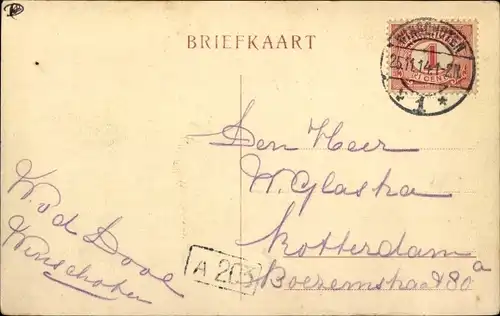 BRIEFKAART
WINSCHOTEN
25.11.14.1-2N
1
1 CENT
Den Heer
W. Glaska
Rotterdam
Boezemstraat 80 a
W. v d Dove
Winschoten
A 203